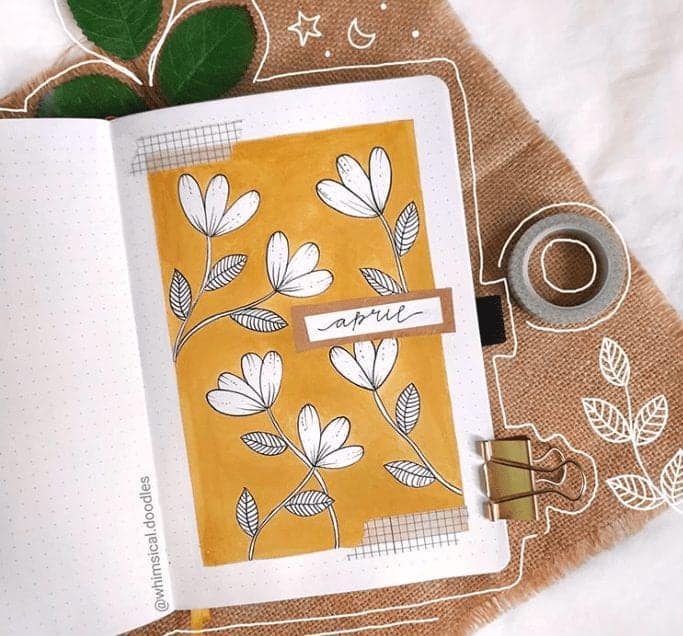 april
@whimsical.doodles